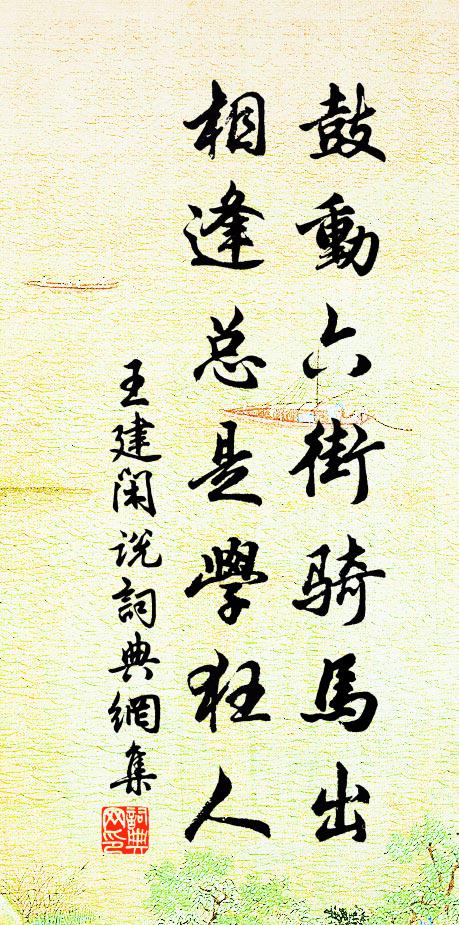 鼓動六街騎馬出
相逢总是學狂人
王建闲说詞典網集
詞典网印